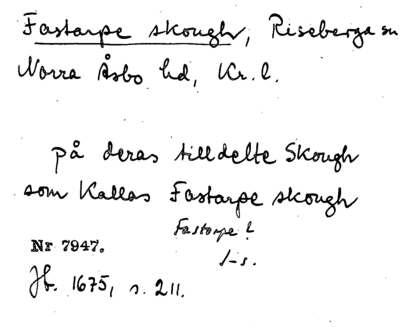 Fastarpe skough, Riseberga sn
Norra Åsbo hd, Kr. l.
på deras tilldelte Skough
som Kallas Fastarpe skough
Fastorpe?
/-s.
Nr 7947.
Jb. 1675, s. 211.